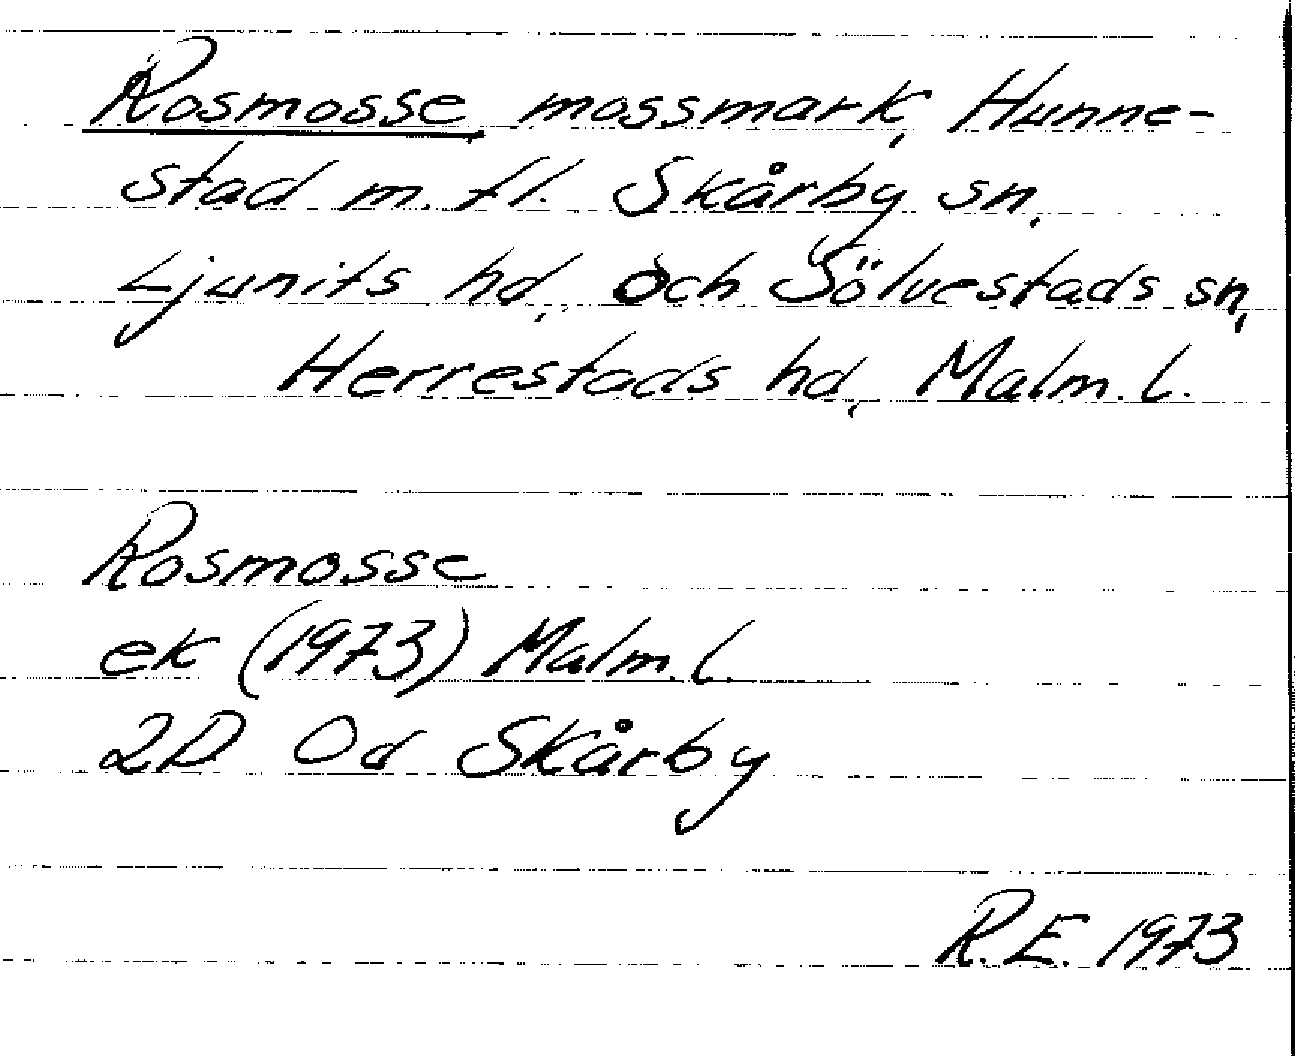 Rosmosse, mossmark, Hunne-
stad m. fl. Skårby sn,
Ljunits hd, och Sölvestads sn,
Herrestads hd, Malm. l.
Rosmosse
ek (1973) Malm. l.
2D Od Skårby
R.E. 1973